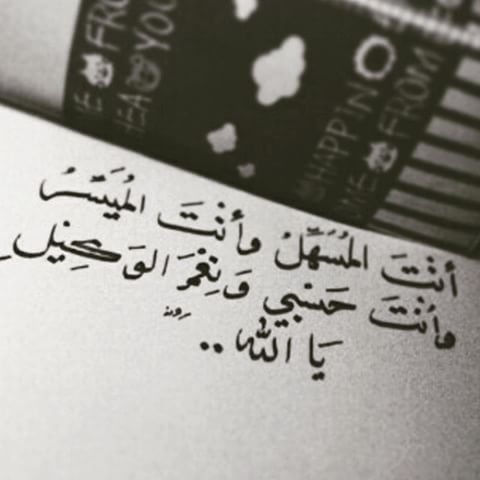 FRO
YOU
HEA
ME
HAPPIN
FROM
ME
أَنْتَ المُسَهِّلُ وأنْتَ المُيَسِّرُ
وأنْتَ حَسْبِي وَنِعْمَ الوَكِيل
يَا الله ..